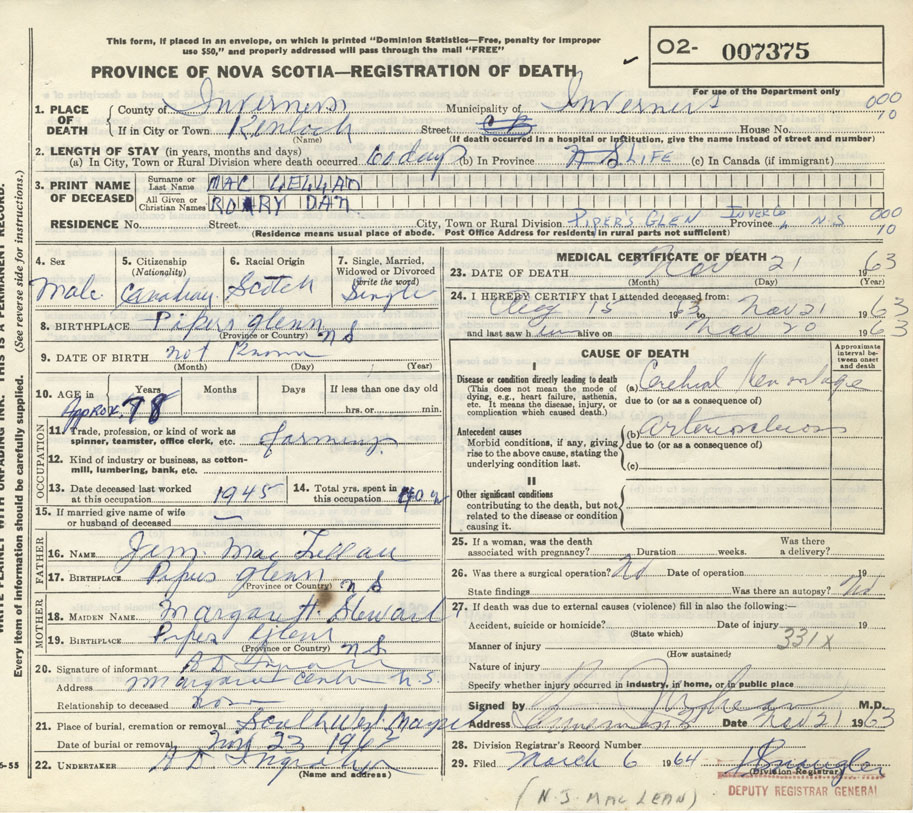 This form, if placed in an envelope, on which is printed "Dominion Statistics—Free, penalty for improper
use $50," and properly addressed will pass through the mail "FREE"
02- 007375
PROVINCE OF NOVA SCOTIA—REGISTRATION OF DEATH
For use of the Department only
1. PLACE OF DEATH County of Inverness Municipality of Inverness 000
If in City or Town Kinloch Street House No. 70
(Name) (If death occurred in a hospital or institution, give the name instead of street and number)
2. LENGTH OF STAY (in years, months and days)
(a) In City, Town or Rural Division where death occurred 60 days (b) In Province LIFE (c) In Canada (if immigrant)
3. PRINT NAME OF DECEASED Surname or Last Name MAC LELLAN
All Given or Christian Names RORY DAN
RESIDENCE No. Street City, Town or Rural Division PIPERS GLEN INVER CO Province N.S 000
(Residence means usual place of abode. Post Office Address for residents in rural parts not sufficient) 70
4. Sex Male
5. Citizenship (Nationality) Canadian
6. Racial Origin Scotch
7. Single, Married, Widowed or Divorced (write the word) Single
8. BIRTHPLACE Pipers glenn N S
(Province or Country)
9. DATE OF BIRTH not Known
(Month) (Day) (Year)
10. AGE in Years Months Days If less than one day old
Approx. 78 hrs. or min.
OCCUPATION
11. Trade, profession, or kind of work as spinner, teamster, office clerk, etc. farming
12. Kind of industry or business, as cotton-mill, lumbering, bank, etc.
13. Date deceased last worked at this occupation 1945
14. Total yrs. spent in this occupation 40
15. If married give name of wife or husband of deceased —
FATHER
16. NAME Jim Mac Lellan
17. BIRTHPLACE Pipers glenn N S
(Province or Country)
MOTHER
18. MAIDEN NAME Margaret Stewart
19. BIRTHPLACE Pipers Glenn N S
(Province or Country)
20. Signature of informant
Address Margaree Centre N.S.
Relationship to deceased none
21. Place of burial, cremation or removal Southwest Margaree
Date of burial or removal Nov 23 1963
22. UNDERTAKER
(Name and address)
MEDICAL CERTIFICATE OF DEATH
23. DATE OF DEATH Nov 21 1963
(Month) (Day) (Year)
24. I HEREBY CERTIFY that I attended deceased from:
Aug 15 1963 to Nov 21 1963
and last saw him alive on Nov 20 1963
CAUSE OF DEATH
Approximate interval between onset and death
I
Disease or condition directly leading to death (a) Cerebral Hemorrhage
(This does not mean the mode of dying, e.g., heart failure, asthenia, etc. It means the disease, injury, or complication which caused death.)
due to (or as a consequence of)
Antecedent causes (b) Arteriosclerosis
Morbid conditions, if any, giving rise to the above cause, stating the underlying condition last.
due to (or as a consequence of)
(c)
II
Other significant conditions
contributing to the death, but not related to the disease or condition causing it.
25. If a woman, was the death associated with pregnancy? Duration weeks. Was there a delivery?
26. Was there a surgical operation? No Date of operation 19
State findings Was there an autopsy? No
27. If death was due to external causes (violence) fill in also the following:—
Accident, suicide or homicide? Date of injury 19
(State which)
Manner of injury 331x
(How sustained)
Nature of injury
Specify whether injury occurred in industry, in home, or in public place
Signed by M.D.
Address Date Nov 21 1963
28. Division Registrar's Record Number
29. Filed March 6 1964
(Division Registrar)
DEPUTY REGISTRAR GENERAL
(N.J. MAC LEAN)
WRITE PLAINLY WITH UNFADING INK. THIS IS A PERMANENT RECORD.
Every item of information should be carefully supplied. (See reverse side for instructions.)
6-55